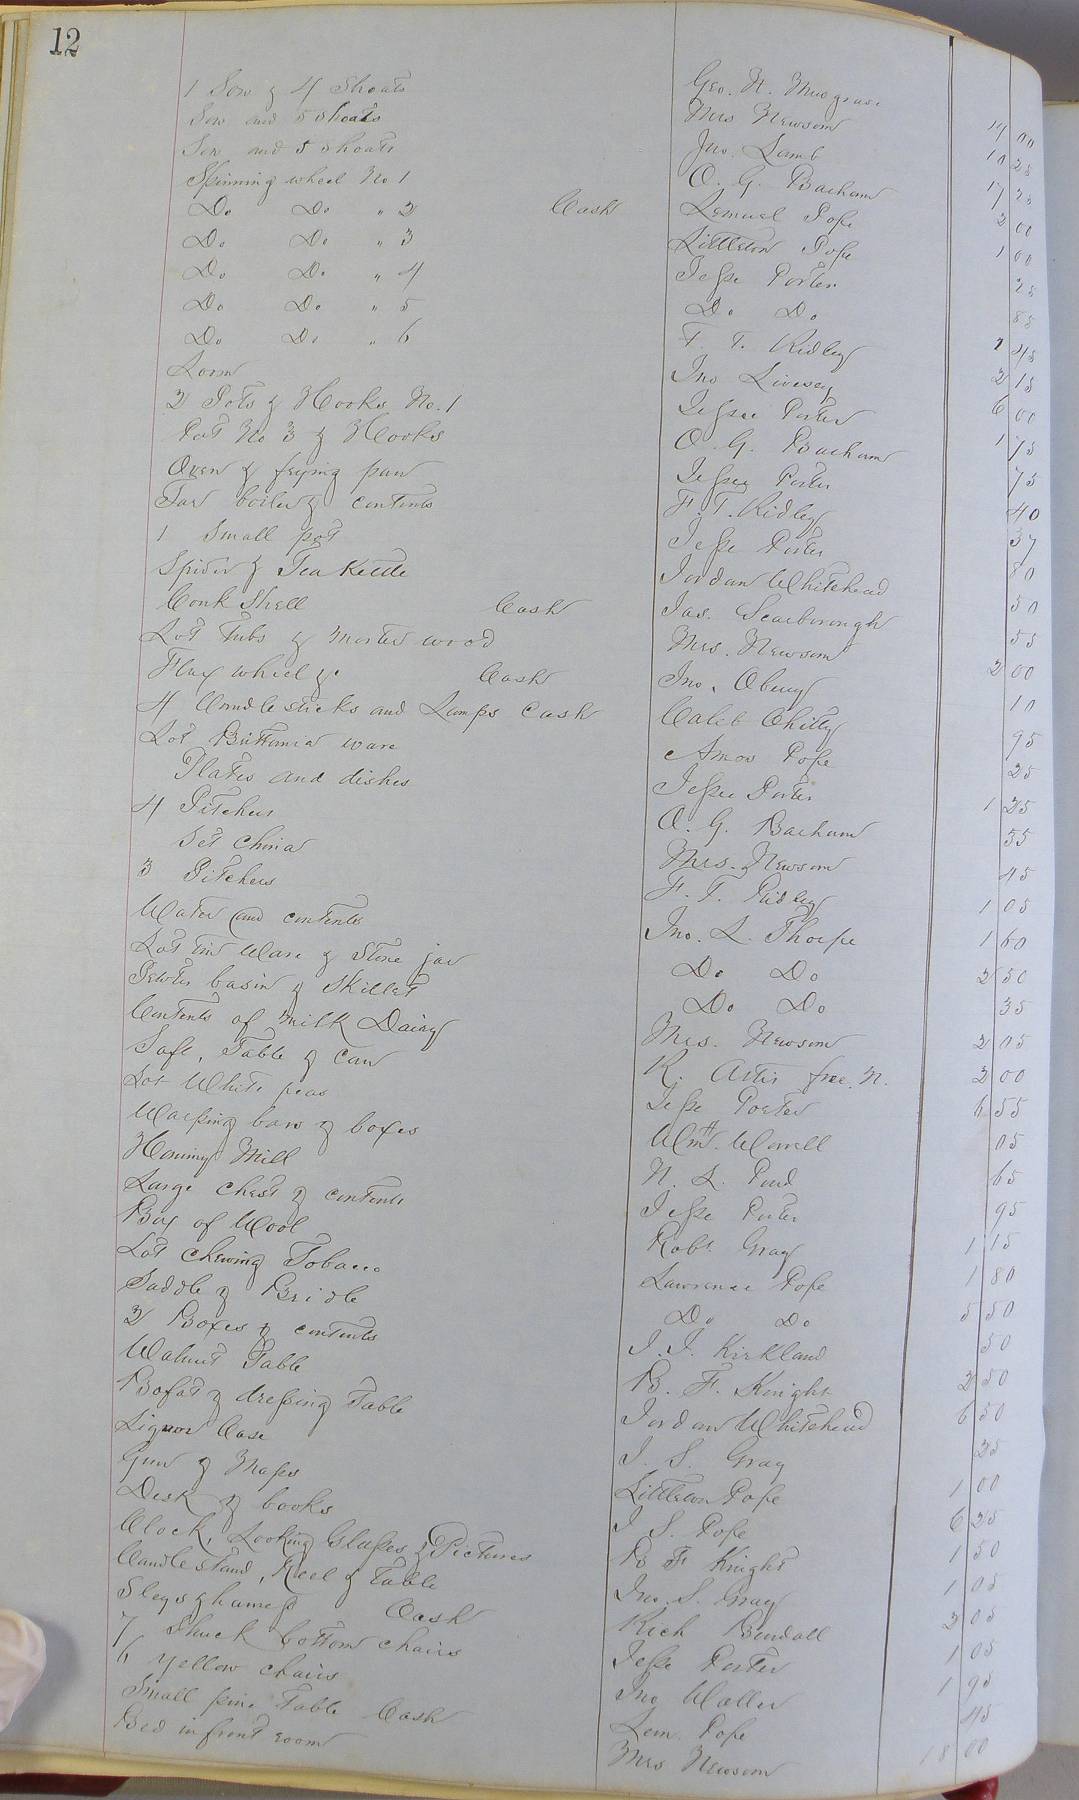 12
1 Sow & 4 Shoats Geo. N. Musgrave 14 00
Sow and 5 Shoats Mrs Newsom 10 25
Sow and 5 Shoats Jno. Lamb 17 25
Spinning wheel No 1 O. G. Barham 2 00
Do Do " 2 Cash Lemuel Pope 1 00
Do Do " 3 Littleton Pope 25
Do Do " 4 Jesse Porter 85
Do Do " 5 Do Do 45
Do Do " 6 F. T. Ridley
Loom Jno Livesey 2 15
2 Pots & Hooks No. 1 Jesse Porter 6 00
Pot No 3 & Hooks O. G. Barham 1 75
Oven & frying pan Jesse Porter 75
Tar boiler & contents F. T. Ridley 40
1 Small pot Jesse Porter 37
Spider & Tea Kettle Jordan Whitehead 80
Conk Shell Cash Jas. Scarborough 50
Lot Tubs & morter wood Mrs. Newsom 55
Flax wheel &c Cash Jno. Obery 2 00
4 Candlesticks and Lamps Cash Caleb Chitty 10
Lot Brittania ware Amos Pope 95
Plates and dishes Jesse Porter 25
4 Pitchers O. G. Barham 1 25
Set China Mrs. Newsom 55
3 Pitchers F. T. Ridley 45
Water and contents Jno. L. Thorpe 1 05
Lot tin Ware & Stone jar Do Do 1 60
Pewter basin & Skillet Do Do 2 50
Contents of Milk Dairy Mrs. Newsom 35
Safe, Table & can R. Artis free. N. 2 05
Lot White peas Jesse Porter 2 00
Warping bars & boxes Wm. H. Worrell 6 55
Hominy Mill N. L. Pond 05
Large Chest & contents Jesse Porter 65
Box of Wool Robt. Gray 95
Lot Chewing Tobacco Lawrence Pope 1 15
Saddle & Bridle Do Do 1 80
2 Boxes & contents J. J. Kirkland 5 50
Walnut Table B. F. Knight 50
Bofat & dressing Table Jordan Whitehead 2 50
Liquor Case J. S. Gray 6 50
Gun & Maps Littleton Pope 25
Desk & books J S. Pope 1 00
Clock, Looking Glasses & Pictures B F Knight 6 25
Candlestand, Reel & Table Jno. S. Gray 1 50
Sleys & hames Cash Rich Bendall 1 05
7 Shuck bottom chairs Jesse Porter 2 05
6 yellow chairs Jno Waller 1 05
Small pine Table Cash Lem Pope 1 95
Bed in front room Mrs Newsom 45
18 00